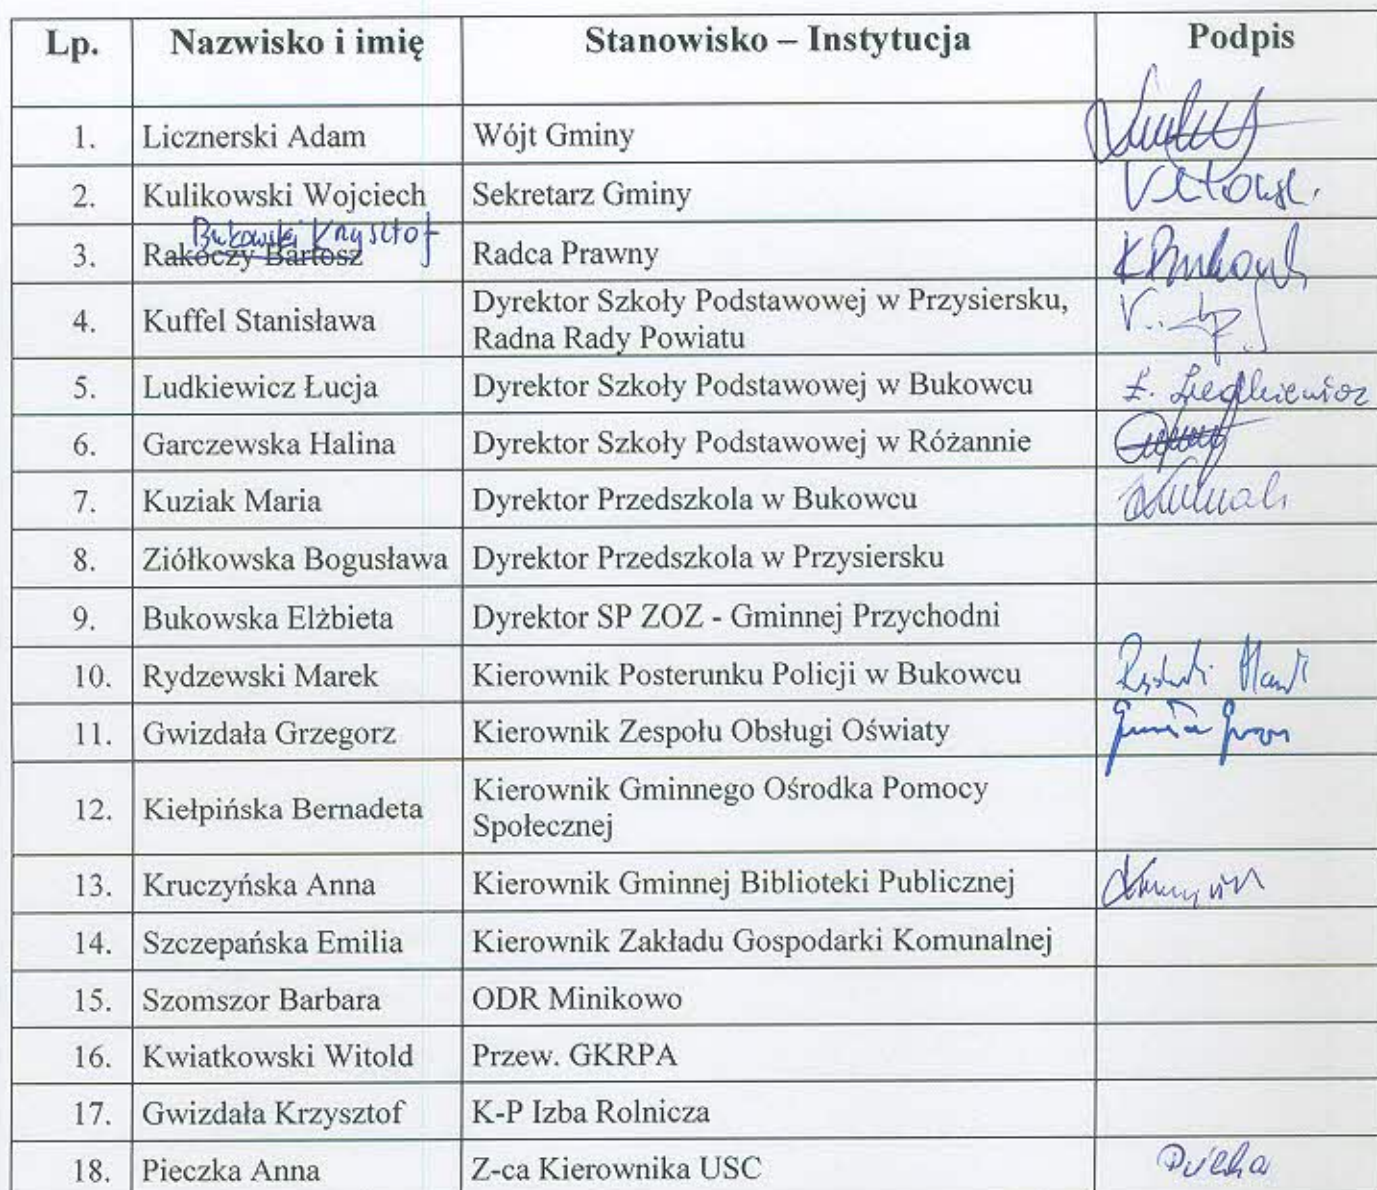 Lp. Nazwisko i imię Stanowisko – Instytucja Podpis
1. Licznerski Adam Wójt Gminy
2. Kulikowski Wojciech Sekretarz Gminy
Bukowski Krzysztof
3. Rakoczy Bartosz Radca Prawny K Bukowski
4. Kuffel Stanisława Dyrektor Szkoły Podstawowej w Przysiersku,
Radna Rady Powiatu
5. Ludkiewicz Łucja Dyrektor Szkoły Podstawowej w Bukowcu Ł. Ludkiewicz
6. Garczewska Halina Dyrektor Szkoły Podstawowej w Różannie
7. Kuziak Maria Dyrektor Przedszkola w Bukowcu
8. Ziółkowska Bogusława Dyrektor Przedszkola w Przysiersku
9. Bukowska Elżbieta Dyrektor SP ZOZ - Gminnej Przychodni
10. Rydzewski Marek Kierownik Posterunku Policji w Bukowcu
11. Gwizdała Grzegorz Kierownik Zespołu Obsługi Oświaty
12. Kiełpińska Bernadeta Kierownik Gminnego Ośrodka Pomocy
Społecznej
13. Kruczyńska Anna Kierownik Gminnej Biblioteki Publicznej
14. Szczepańska Emilia Kierownik Zakładu Gospodarki Komunalnej
15. Szomszor Barbara ODR Minikowo
16. Kwiatkowski Witold Przew. GKRPA
17. Gwizdała Krzysztof K-P Izba Rolnicza
18. Pieczka Anna Z-ca Kierownika USC